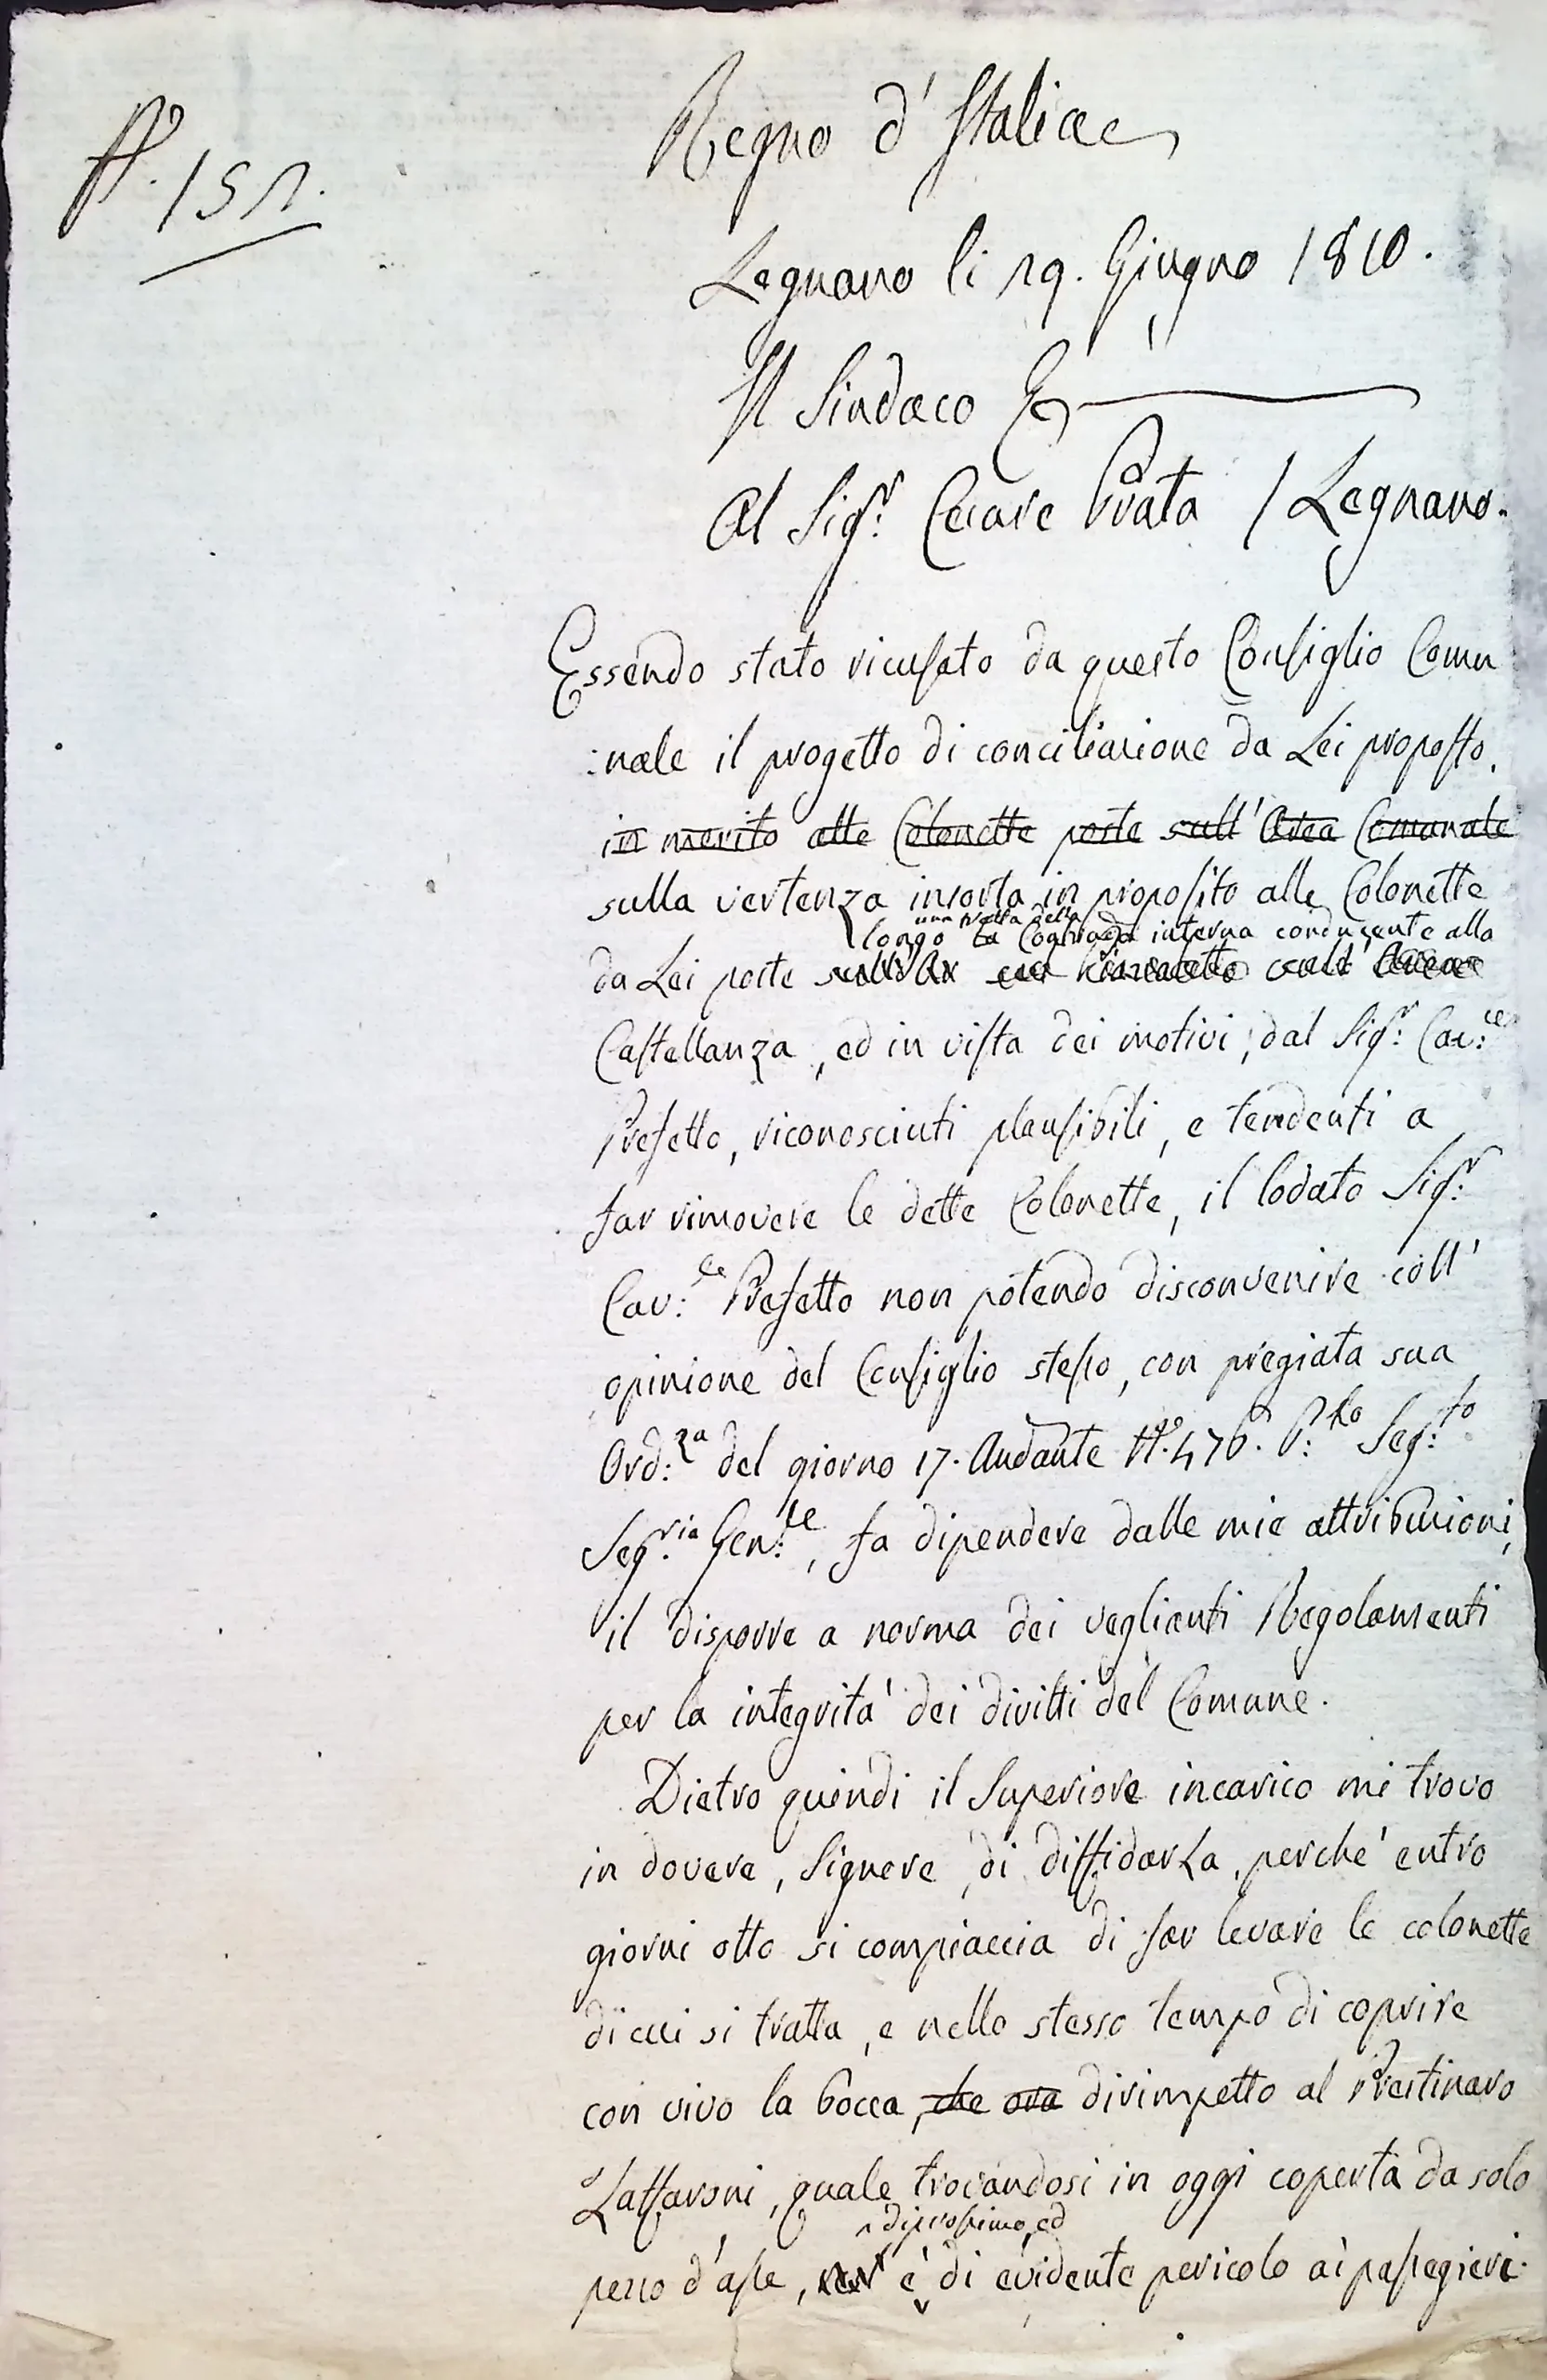 N.º 152.
Regno d'Italia
Legnano li 29. Giugno 1810.
Il Sindaco
Al Sig.r Cesare Prata / Legnano.
Essendo stato ricusato da questo Consiglio Comu
:nale il progetto di conciliazione da Lei proposto,
in merito alle Colonette poste sull'Area Comunale
sulla vertenza insorta in proposito alle Colonette
una tratta della
longo la Contrada interna conducente alla
da Lei poste
Castellanza, ed in vista dei motivi, dal Sig.r Cav:ce
Prefetto, riconosciuti plausibili, e tendenti a
far rimovere le dette Colonette, il lodato Sig.r
Cav:ce Prefetto non potendo disconvenire coll'
opinione del Consiglio stesso, con pregiata sua
Ord:za del giorno 17. Andante N.º 476. P:llo Seg:to
Seg.ria Gen:le, fa dipendere dalle mie attribuzioni,
il disporre a norma dei veglianti Regolamenti
per la integrita' dei diritti del Comune.
Dietro quindi il Superiore incarico mi trovo
in dovere, Signore, di diffidarLa, perche' entro
giorni otto si compiaccia di far levare le colonette
di cui si tratta, e nello stesso tempo di coprire
con vivo la bocca, che ora dirimpetto al Prestinaro
Zaffaroni, quale trovandosi in oggi coperta da solo
di prossimo, ed
pezzo d'asse, è di evidente pericolo ai passegieri.